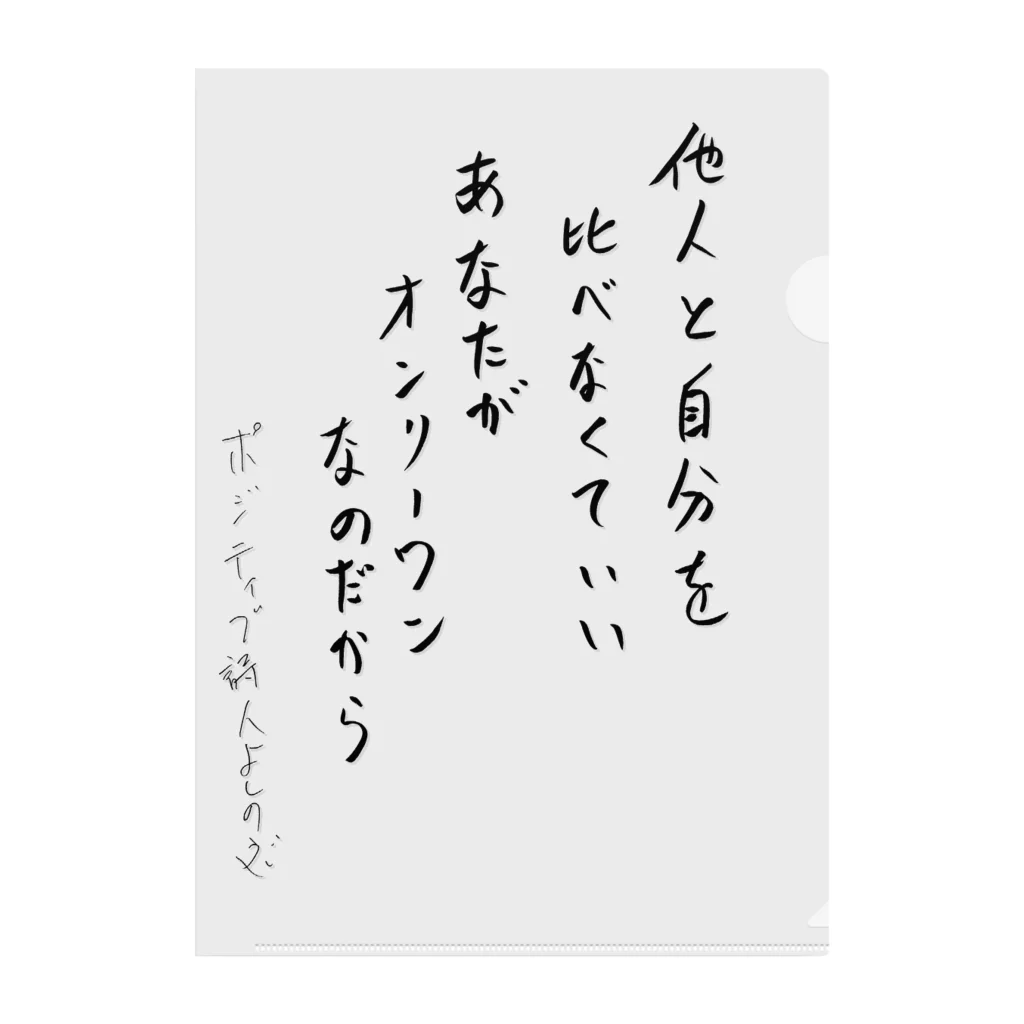 他人と自分を
比べなくていい
あなたが
オンリーワン
なのだから
ポジティブ詩人よしの